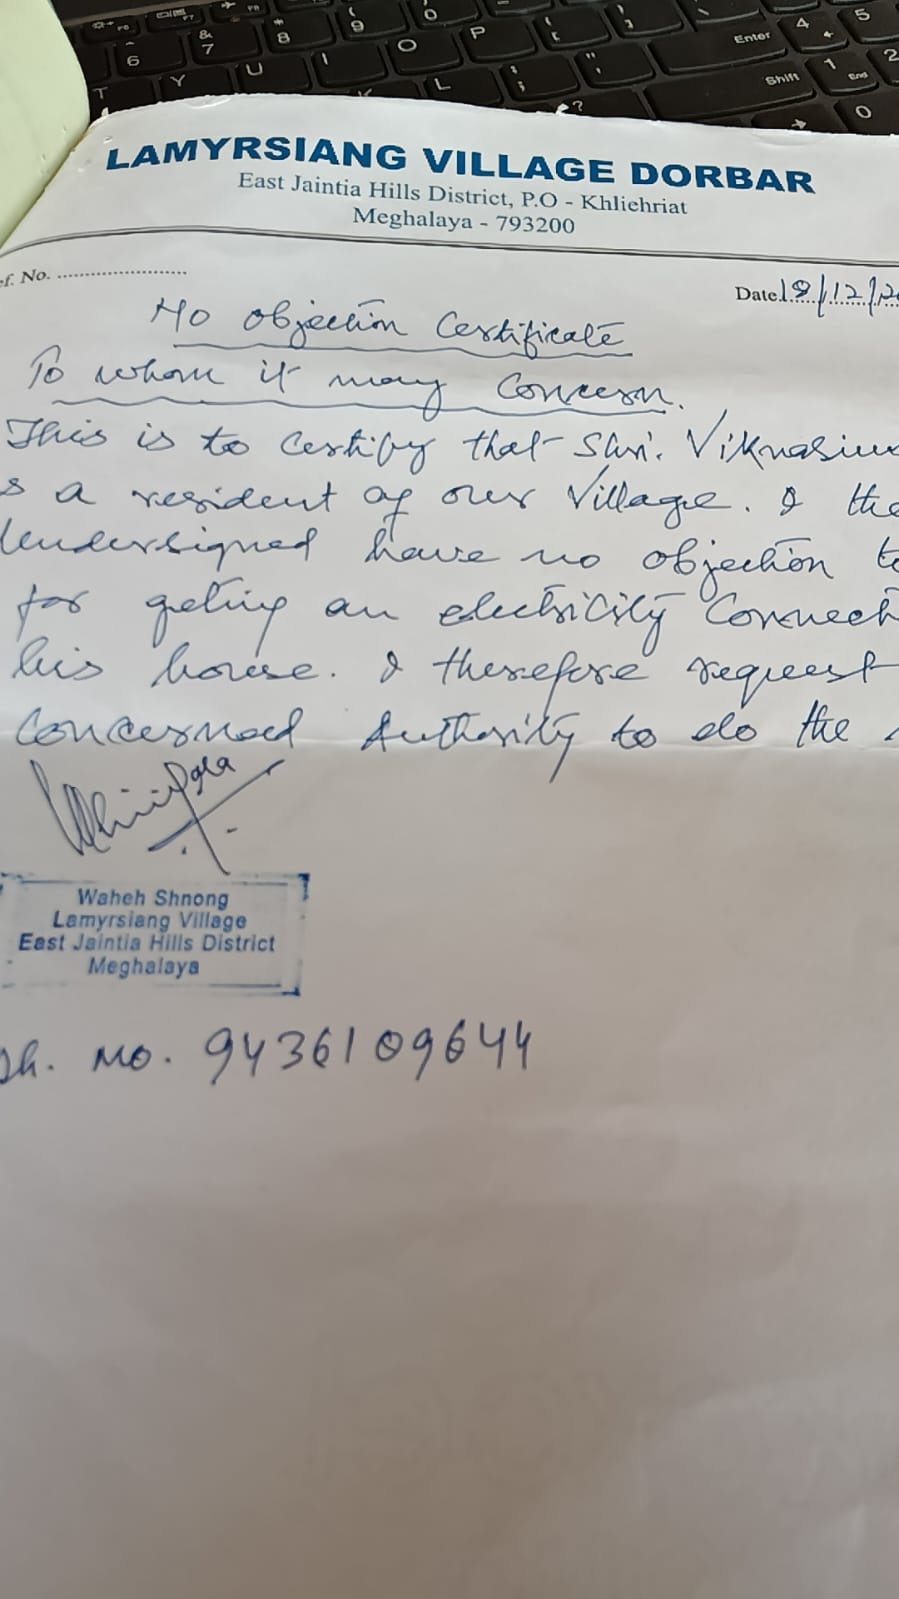 LAMYRSIANG VILLAGE DORBAR
East Jaintia Hills District, P.O - Khliehriat
Meghalaya - 793200
ef. No. ........................
Date 19/12/20
No Objection Certificate
To whom it may Concern.
This is to certify that Shri. Viknasiu
s a resident of our Village. I the
Undersigned have no objection to
for geting an electricity Connect
his house. I therefore request
Concerned Authority to do the
Waheh Shnong
Lamyrsiang Village
East Jaintia Hills District
Meghalaya
Ph. No. 9436109644
6
&
7
*
8
(
9
)
0
T
Y
U
I
O
P
L
Enter
Shift
4
5
1
End
2
0
?